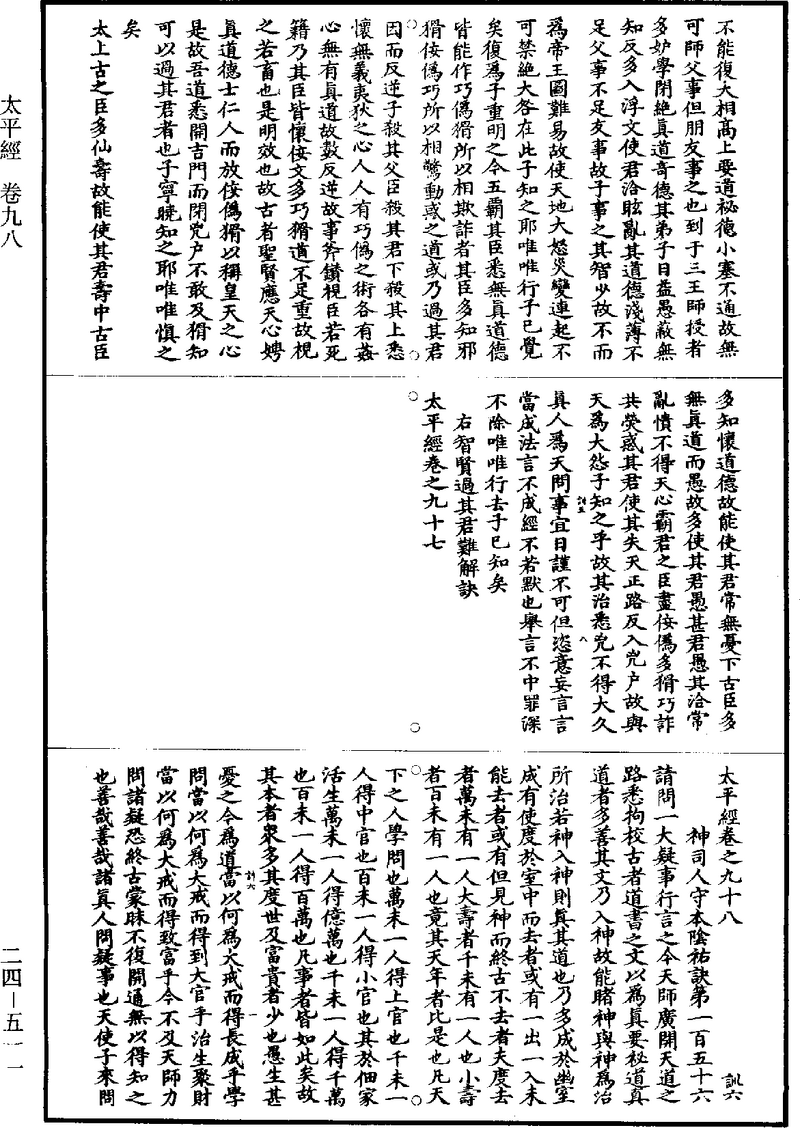 太平經 卷九八
不能復大相高上要道祕德小塞不通故無
可師父事但朋友事之也到于三王師授者
多妒學閉絕真道奇德其弟子日益愚蔽無
知反多入浮文使君治眩亂其道德淺薄不
足父事不足友事故子事之其智少故不而
為帝王圖難易故使天地大怒災變連起不
可禁絕大咎在此子知之耶唯唯行子已覺
矣復為子重明之今五霸其臣悉無真道德
皆能作巧偽猾所以相欺詐者其臣多知邪
猾佞偽巧所以相驚動或之道或乃過其君
因而反逆子殺其父臣殺其君下殺其上悉
懷無義夷狄之心人人有巧偽之術各有姦
心無有真道故數反逆故事斧鑕視臣若死
籍乃其臣皆懷佞文多巧猾道不足重故視
之若畜也是明效也故古者聖賢應天心娉
真道德士仁人而放佞偽猾以稱皇天之心
是故吾道悉開吉門而閉兇户不敢及猾知
可以過其君者也子寧曉知之耶唯唯慎之
矣
太上古之臣多仙壽故能使其君壽中古臣
多知懷道德故能使其君常無憂下古臣多
無真道而愚故多使其君愚甚君愚其治常
亂憒不得天心霸君之臣盡佞偽多猾巧詐
共熒惑其君使其失天正路反入兇户故與
天為大怨子知之乎故其治悉兇不得大久
訓五 八
真人為天問事宜日謹不可但恣意妄言言
當成法言不成經不若默也舉言不中罪深
不除唯唯行去子已知矣
右智賢過其君難解訣
太平經卷之九十七
太平經卷之九十八 訓六
神司人守本陰祐訣第一百五十六
請問一大疑事行言之今天師廣開天道之
路悉拘校古者道書之文以為真要祕道真
道者多善其文乃入神故能睹神與神為治
所治若神入神則真其道也乃多成於幽室
成有使度於室中而去者或有一出一入未
能去者或有但見神而終古不去者夫度去
者萬未有一人大壽者千未有一人也小壽
者百未有一人也竟其天年者比是也凡天
下之人學問也萬未一人得上官也千未一
人得中官也百未一人得小官也其於佃家
活生萬未一人得億萬也千未一人得千萬
也百未一人得百萬也凡事者皆如此矣故
其本者衆多其度世及富貴者少也愚生甚
訓六 一
憂之今為道當以何為大戒而得長成乎學
問當以何為大戒而得到大官乎治生聚財
當以何為大戒而得致富乎今不及天師力
問諸疑恐終古蒙昧不復開通無以得知之
也善哉善哉諸真人問疑事也天使子來問
二四–五一一